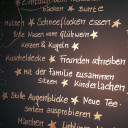 backen & Bunte
Mützen * Schneeflocken essen *
Tolle Nasen vom Glühwein
Kerzen & Kugeln *
Kuscheldecke * Freunden schreiben
* mit der Familie zusammen
sitzen * Kinderlachen
* Stille Augenblicke * Neue Tee-
sorten ausprobieren *
Märchen * Lieblings